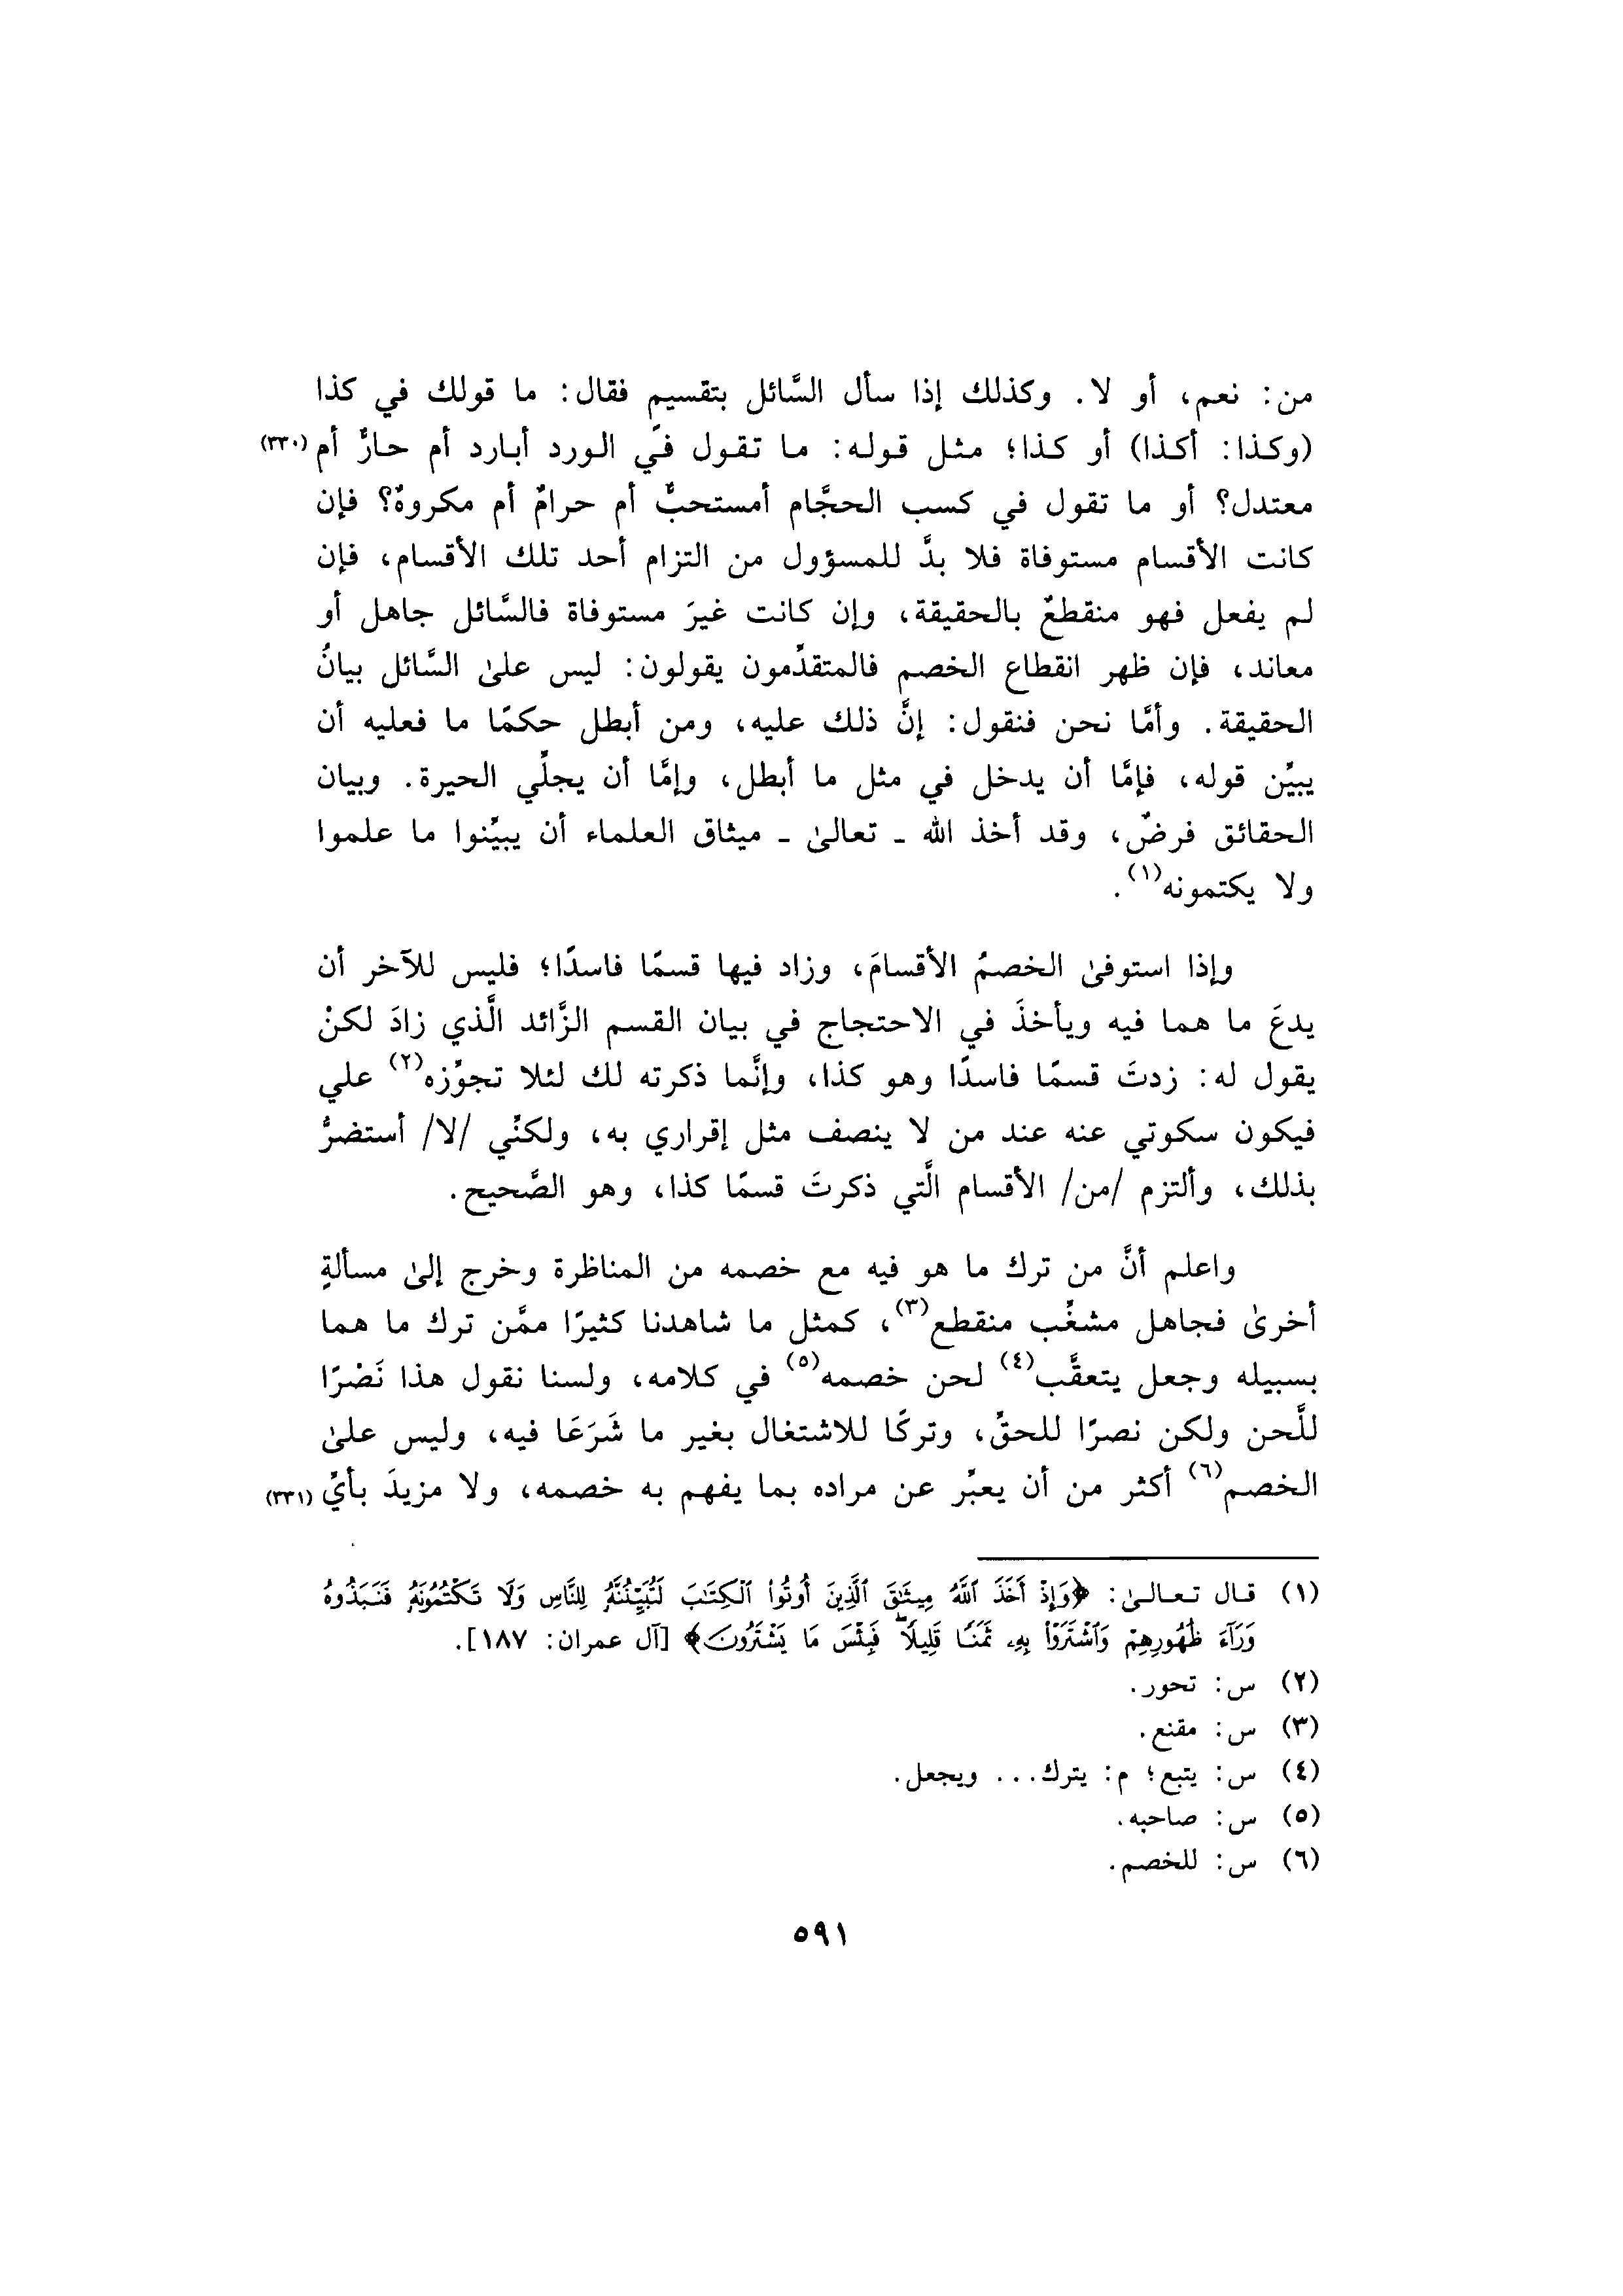 من: نعم، أو لا. وكذلك إذا سأل السَّائل بتقسيمٍ فقال: ما قولك في كذا
(وكذا: أكذا) أو كذا؛ مثل قوله: ما تقول في الورد أبارد أم حارٌّ أم (٣٣٠)
معتدل؟ أو ما تقول في كسب الحجَّام أمستحبٌّ أم حرامٌ أم مكروهٌ؟ فإن
كانت الأقسام مستوفاة فلا بدَّ للمسؤول من التزام أحد تلك الأقسام، فإن
لم يفعل فهو منقطعٌ بالحقيقة، وإن كانت غيرَ مستوفاة فالسَّائل جاهل أو
معاند، فإن ظهر انقطاع الخصم فالمتقدِّمون يقولون: ليس علىٰ السَّائل بيانُ
الحقيقة. وأمَّا نحن فنقول: إنَّ ذلك عليه، ومن أبطل حكمًا ما فعليه أن
يبيِّن قوله، فإمَّا أن يدخل في مثل ما أبطل، وإمَّا أن يجلِّي الحيرة. وبيان
الحقائق فرضٌ، وقد أخذ الله ـ تعالىٰ ـ ميثاق العلماء أن يبيِّنوا ما علموا
ولا يكتمونه(١).
وإذا استوفىٰ الخصمُ الأقسامَ، وزاد فيها قسمًا فاسدًا؛ فليس للآخر أن
يدعَ ما هما فيه ويأخذَ في الاحتجاج في بيان القسم الزَّائد الَّذي زادَ لكنْ
يقول له: زدتَ قسمًا فاسدًا وهو كذا، وإنَّما ذكرته لك لئلا تجوِّزه(٢) علي
فيكون سكوتي عنه عند من لا ينصف مثل إقراري به، ولكنِّي /لا/ أستضرُّ
بذلك، وألتزم /من/ الأقسام الَّتي ذكرتَ قسمًا كذا، وهو الصَّحيح.
واعلم أنَّ من ترك ما هو فيه مع خصمه من المناظرة وخرج إلىٰ مسألةٍ
أخرىٰ فجاهل مشغِّب منقطع(٣)، كمثل ما شاهدنا كثيرًا ممَّن ترك ما هما
بسبيله وجعل يتعقَّب(٤) لحن خصمه(٥) في كلامه، ولسنا نقول هذا نَصْرًا
للَّحن ولكن نصرًا للحقِّ، وتركًا للاشتغال بغير ما شَرَعَا فيه، وليس علىٰ
الخصم(٦) أكثر من أن يعبِّر عن مراده بما يفهم به خصمه، ولا مزيدَ بأيِّ (٣٣١)
(١) قال تعالىٰ: ﴿وَإِذْ أَخَذَ ٱللَّهُ مِيثَٰقَ ٱلَّذِينَ أُوتُوا۟ ٱلْكِتَٰبَ لَتُبَيِّنُنَّهُۥ لِلنَّاسِ وَلَا تَكْتُمُونَهُۥ فَنَبَذُوهُ
وَرَآءَ ظُهُورِهِمْ وَٱشْتَرَوْا۟ بِهِۦ ثَمَنًا قَلِيلًا ۖ فَبِئْسَ مَا يَشْتَرُونَ﴾ [آل عمران: ١٨٧].
(٢) س: تحور.
(٣) س: مقنع.
(٤) س: يتبع؛ م: يترك... ويجعل.
(٥) س: صاحبه.
(٦) س: للخصم.
٥٩١